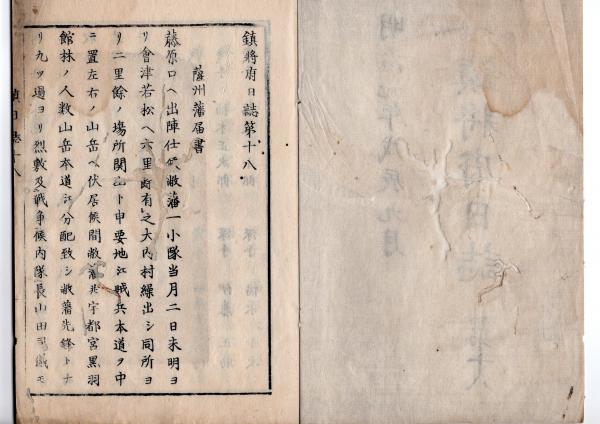 鎮將府日誌第十八
薩州藩届書
藤原口ヘ出陣仕候敝藩一小隊当月二日未明ヨ
リ會津若松ヘ六里斷有之大内村繰出シ同所ヨ
リ二里餘ノ塲所関山ト申要地江賊兵本道ヲ中
ニ置左右ノ山岳ヘ伏居候間敝藩并宇都宮黒羽
館林ノ人数山岳本道江分配致シ敝藩先鋒トナ
リ九ツ過ヨリ烈敷及戦争候内隊長山田
鎮日誌十八